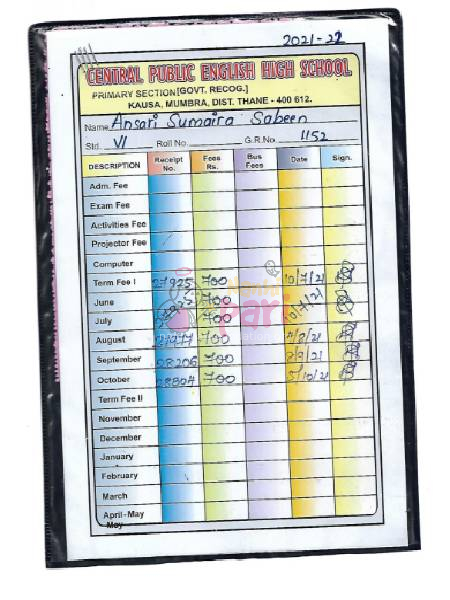 2021-22
CENTRAL PUBLIC ENGLISH HIGH SCHOOL
PRIMARY SECTION [GOVT. RECOG.]
KAUSA, MUMBRA, DIST. THANE - 400 612.
Name Ansari Sumaira Sabeen
Std. VI Roll No. G.R.No. 1152
DESCRIPTION Receipt No. Fees Rs. Bus Fees Date Sign.
Adm. Fee
Exam Fee
Activities Fee
Projector Fee
Computer
Term Fee I 27925 700 10/7/21
June 700
July 700 10/7/21
August 27977 700 4/8/21
September 28206 700 3/9/21
October 28804 700 5/10/21
Term Fee II
November
December
January
February
March
April-May
May
Pari